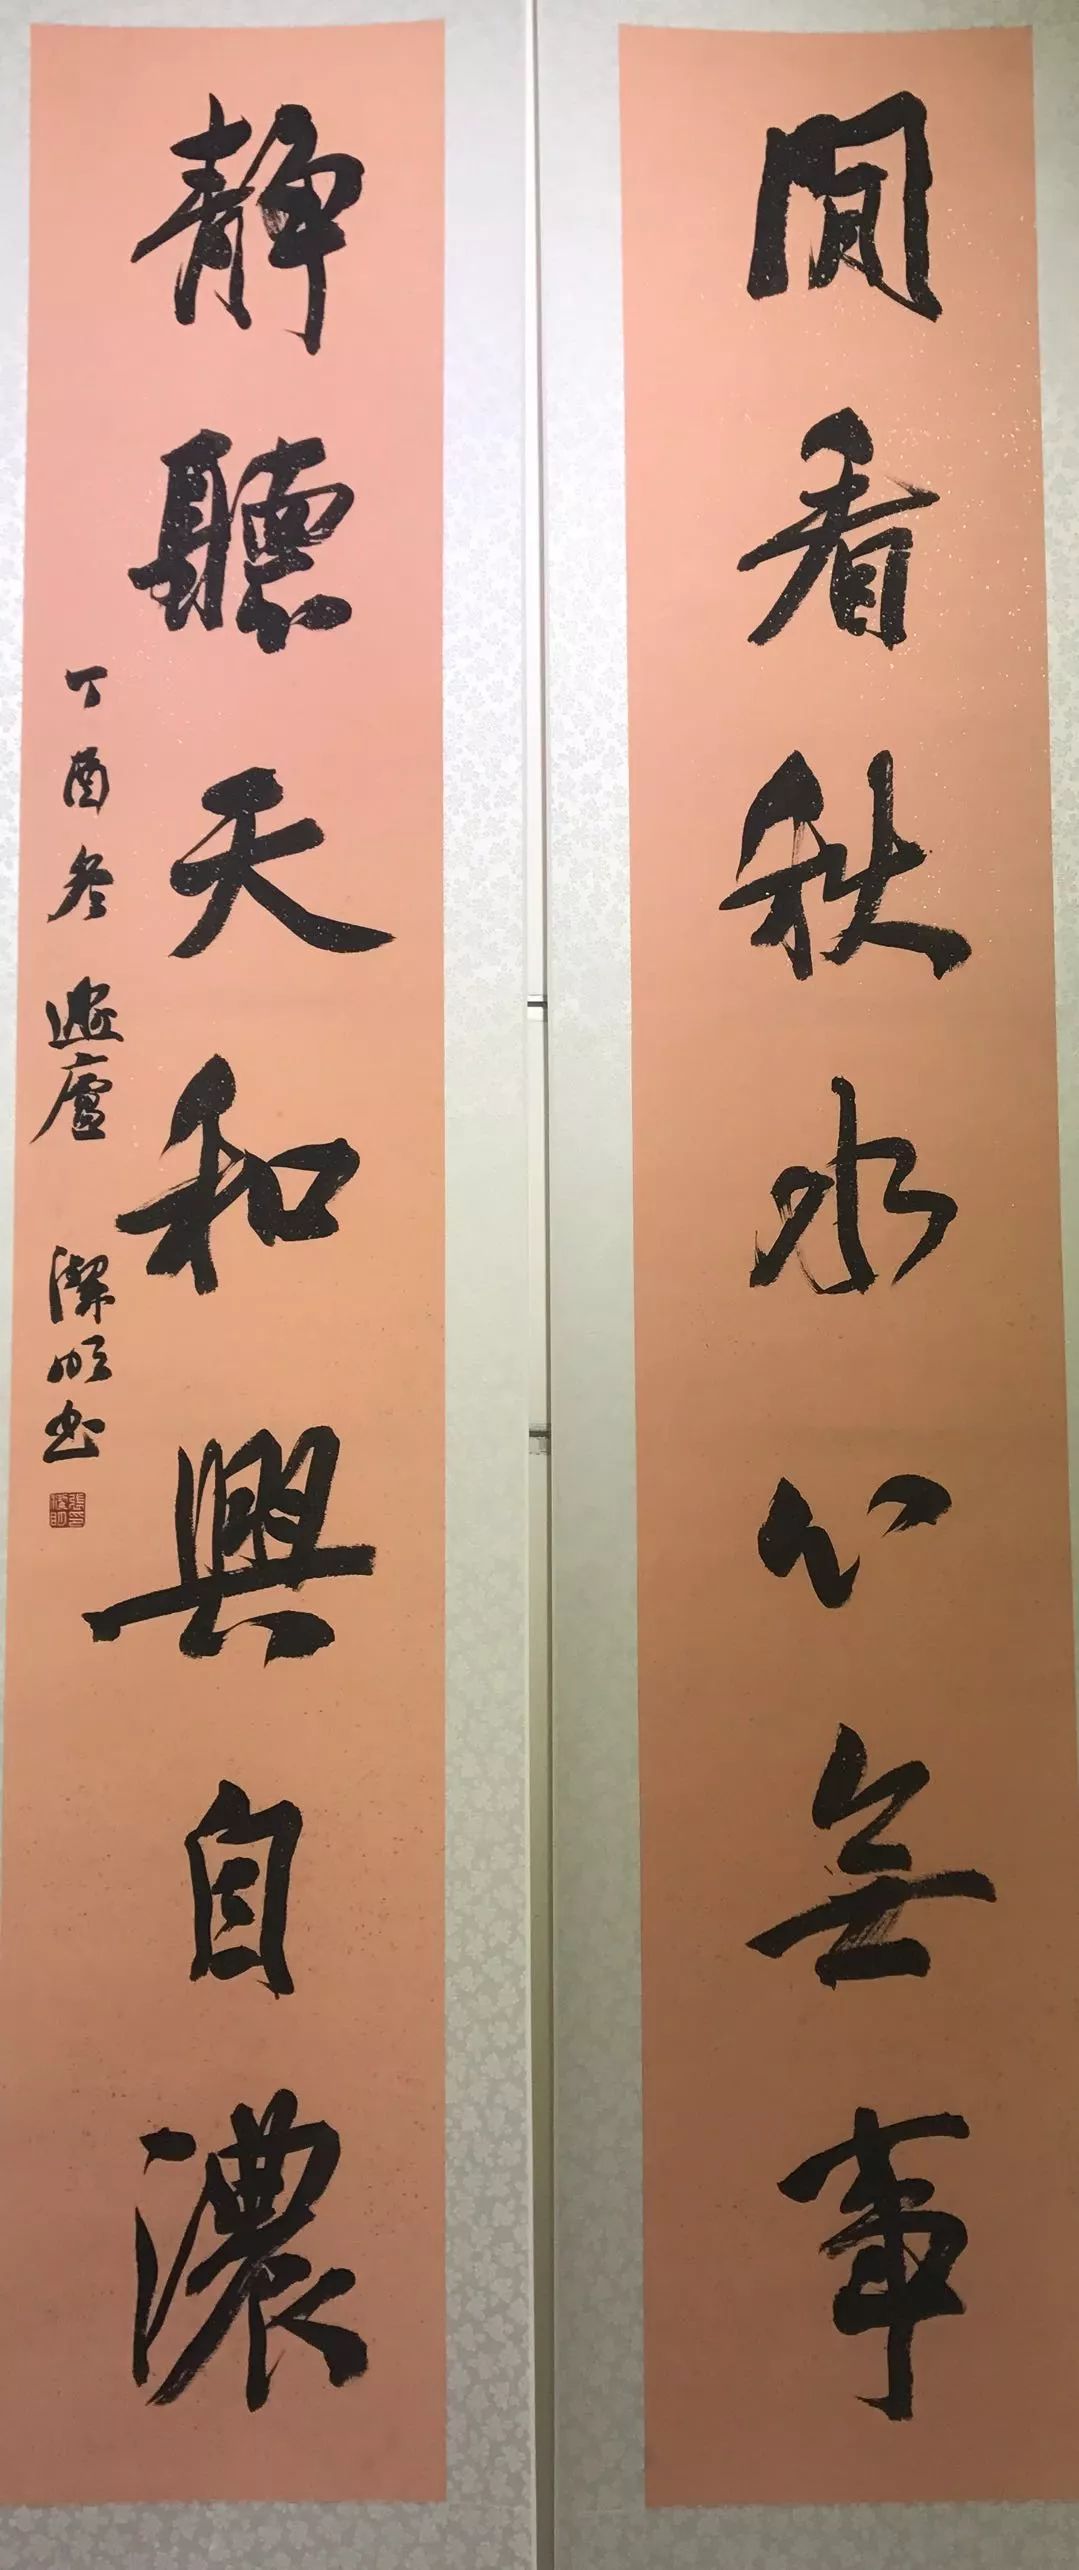 閒看秋水心無事
静聽天和興自濃
丁酉冬 邋廬 潔明书